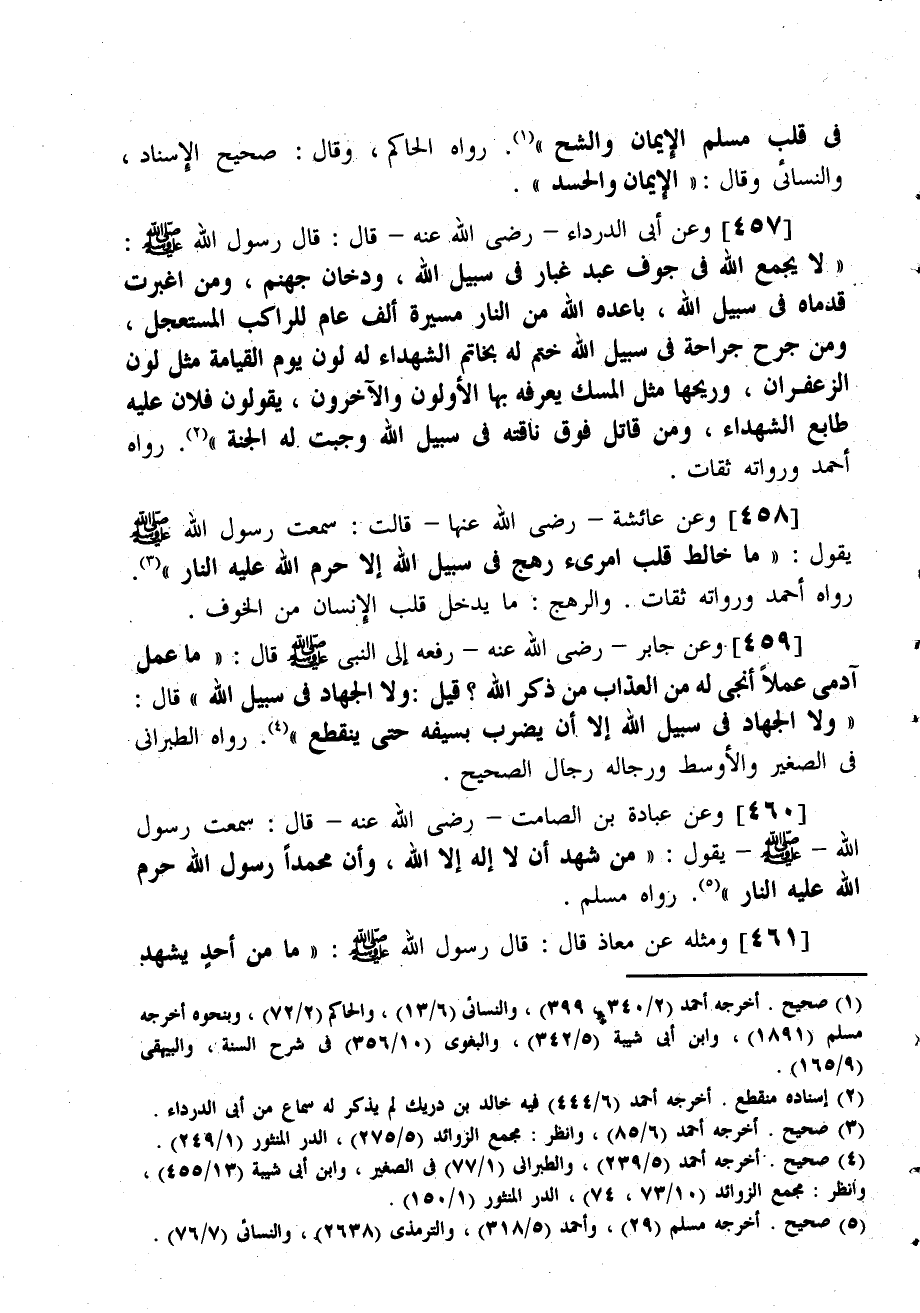 فى قلب مسلم الإيمان والشح »(١). رواه الحاكم ، وقال : صحيح الإسناد ،
والنسائى وقال : « الإيمان والحسد » .
[٤٥٧] وعن أبى الدرداء – رضى الله عنه – قال : قال رسول الله ﷺ :
« لا يجمع الله فى جوف عبد غبار فى سبيل الله ، ودخان جهنم ، ومن اغبرت
قدماه فى سبيل الله ، باعده الله من النار مسيرة ألف عام للراكب المستعجل ،
ومن جرح جراحة فى سبيل الله ختم له بخاتم الشهداء له لون يوم القيامة مثل لون
الزعفران ، وريحها مثل المسك يعرفه بها الأولون والآخرون ، يقولون فلان عليه
طابع الشهداء ، ومن قاتل فوق ناقته فى سبيل الله وجبت له الجنة »(٢). رواه
أحمد ورواته ثقات .
[٤٥٨] وعن عائشة – رضى الله عنها – قالت : سمعت رسول الله ﷺ
يقول : « ما خالط قلب امرىء رهج فى سبيل الله إلا حرم الله عليه النار »(٣).
رواه أحمد ورواته ثقات . والرهج : ما يدخل قلب الإنسان من الخوف .
[٤٥٩] وعن جابر – رضى الله عنه – رفعه إلى النبى ﷺ قال : « ما عمل
آدمى عملاً أنجى له من العذاب من ذكر الله ؟ قيل :ولا الجهاد فى سبيل الله » قال :
« ولا الجهاد فى سبيل الله إلا أن يضرب بسيفه حتى ينقطع »(٤). رواه الطبرانى
فى الصغير والأوسط ورجاله رجال الصحيح .
[٤٦٠] وعن عبادة بن الصامت – رضى الله عنه – قال : سمعت رسول
الله – ﷺ – يقول : « من شهد أن لا إله إلا الله ، وأن محمداً رسول الله حرم
الله عليه النار »(٥). رواه مسلم .
[٤٦١] ومثله عن معاذ قال : قال رسول الله ﷺ : « ما من أحدٍ يشهد
(١) صحيح . أخرجه أحمد (٣٤٠/٢ ، ٣٩٩) ، والنسائى (١٣/٦) ، والحاكم (٧٢/٢) ، وبنحوه أخرجه
مسلم (١٨٩١) ، وابن أبى شيبة (٣٤٢/٥) ، والبغوى (٣٥٦/١٠) فى شرح السنة ، والبيهقى
(١٦٥/٩) .
(٢) إسناده منقطع . أخرجه أحمد (٤٤٤/٦) فيه خالد بن دريك لم يذكر له سماع من أبى الدرداء .
(٣) صحيح . أخرجه أحمد (٨٥/٦) ، وانظر : مجمع الزوائد (٢٧٥/٥) ، الدر المنثور (٢٤٩/١) .
(٤) صحيح . أخرجه أحمد (٢٣٩/٥) ، والطبرانى (٧٧/١) فى الصغير ، وابن أبى شيبة (٤٥٥/١٣) ،
وانظر : مجمع الزوائد (٧٣/١٠ ، ٧٤) ، الدر المنثور (١٥٠/١) .
(٥) صحيح . أخرجه مسلم (٢٩) ، وأحمد (٣١٨/٥) ، والترمذى (٢٦٣٨) ، والنسائى (٧٦/٧) .